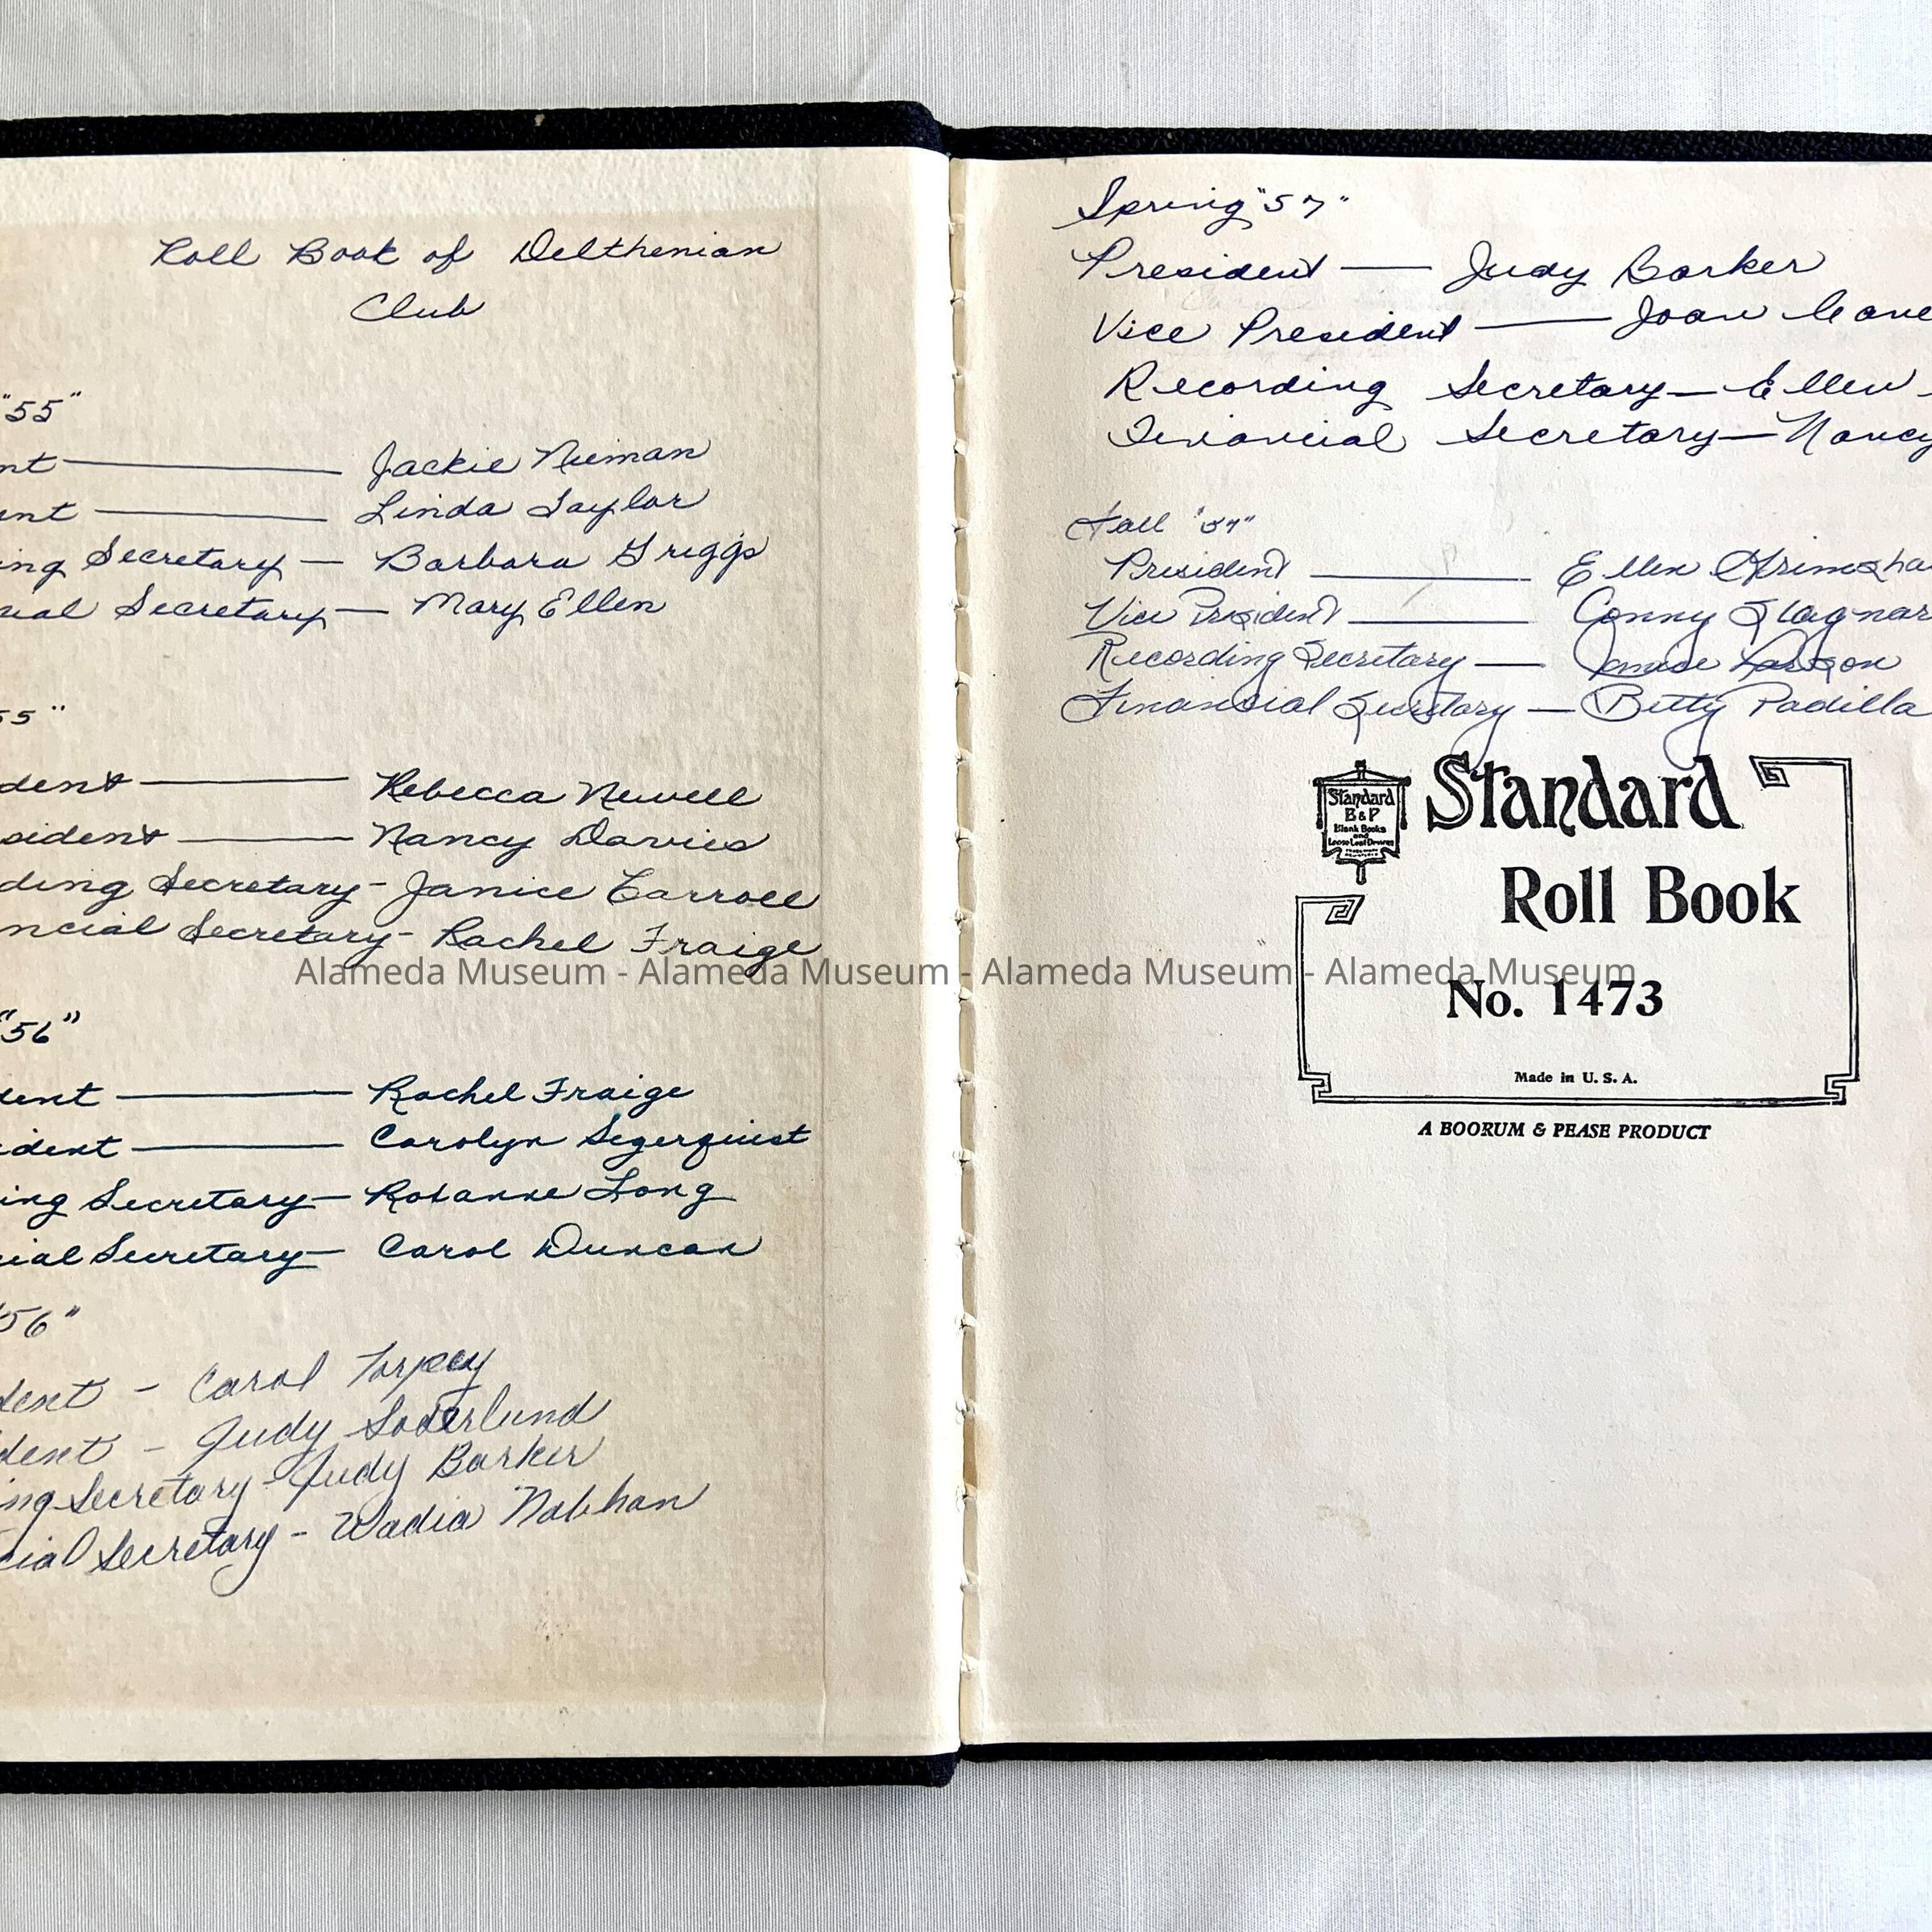 Roll Book of Delthenian
Club
"55"
nt — Jackie Nieman
ent — Linda Taylor
ing Secretary — Barbara Griggs
cial Secretary — Mary Ellen
55"
dent — Rebecca Newell
sident — Nancy Davies
ding Secretary - Janice Carroll
ncial Secretary - Rachel Fraige
"56"
dent — Rachel Fraige
ident — Carolyn Segerquist
ing Secretary — Roxanne Long
cial Secretary — Carol Duncan
56"
dent - Carol Torpey
dent - Judy Soderlund
ing Secretary - Judy Barker
cial Secretary - Wadia Nabhan
Spring "57"
President — Judy Barker
Vice President — Joan
Recording Secretary — Ellen
Financial Secretary — Nancy
Fall "57"
President — Ellen Grimsha
Vice President — Conny
Recording Secretary — Janice Larson
Financial Secretary — Betty Padilla
Standard
B&P
Blank Books
and
Loose Leaf Devices
Standard
Roll Book
No. 1473
Made in U. S. A.
A BOORUM & PEASE PRODUCT
Alameda Museum - Alameda Museum - Alameda Museum - Alameda Museum